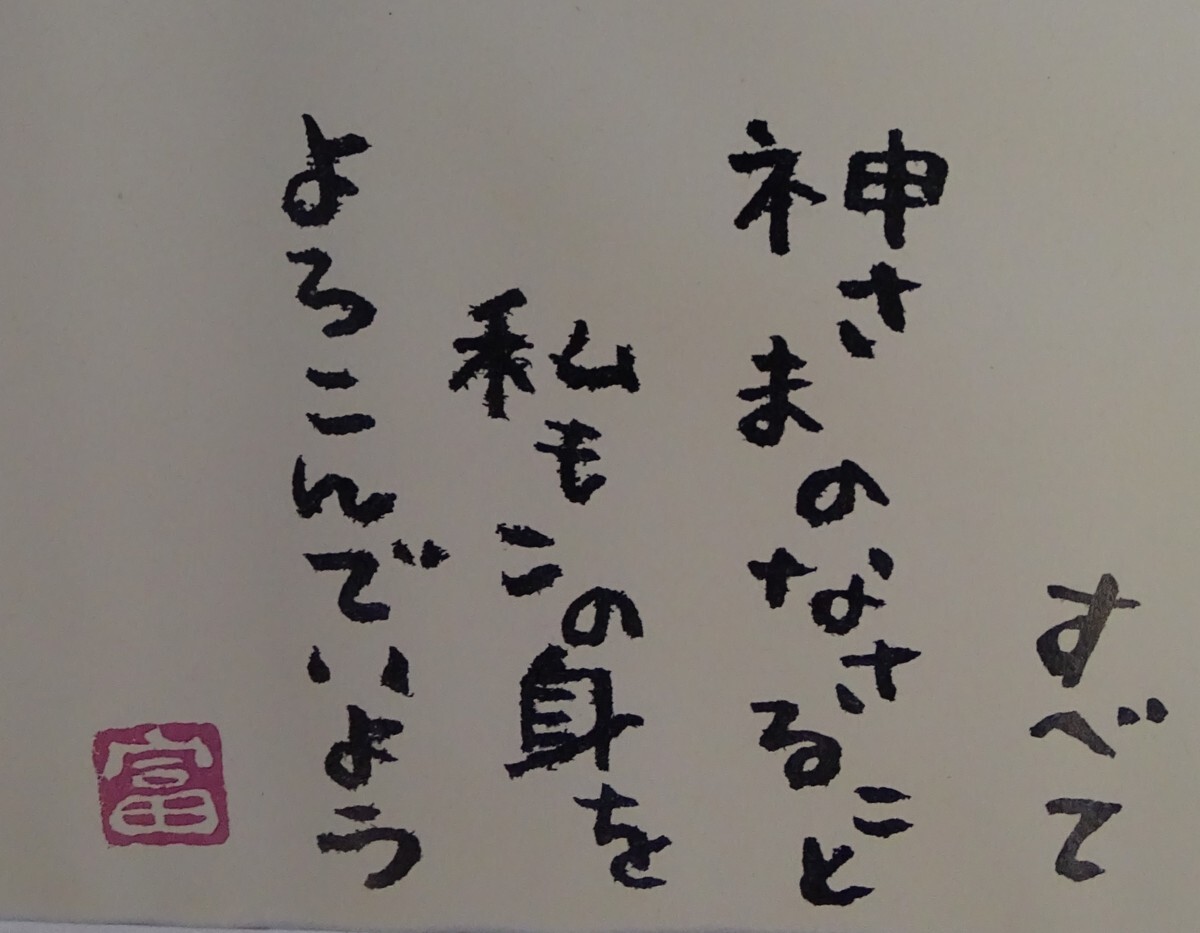 すべて
神さまのなさること
私もこの身を
よろこんでいよう
富